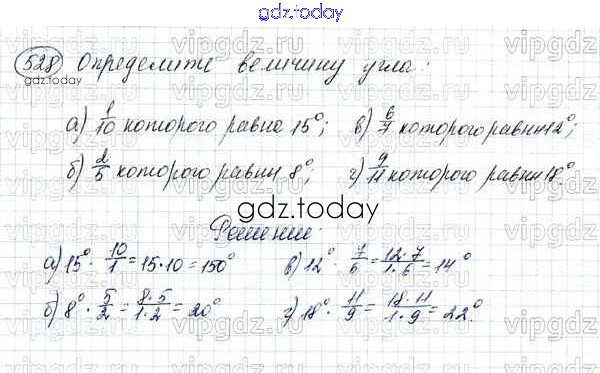 gdz.today
528 Определите величину угла:
gdz.today
а) 1/10 которого равна 15°; в) 6/7 которого равны 12°;
б) 2/5 которого равны 8°; г) 9/11 которого равны 18°.
gdz.today
Решение:
а) 15° · 10/1 = 15·10 = 150° в) 12° · 7/6 = 12·7/1·6 = 14°
б) 8° · 5/2 = 8·5/1·2 = 20° г) 18° · 11/9 = 18·11/1·9 = 22°.
vipgdz.ru